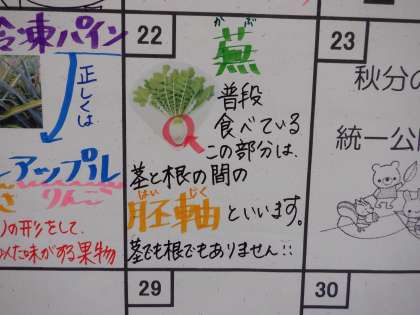 冷凍パイン
正しくは
アップル
りんご
の形をして、
味がする果物
22
かぶ
蕪
普段
食べている
この部分は、
茎と根の間の
はいじく
胚軸といいます。
茎でも根でもありません!!
23
秋分の
統一公
29
30